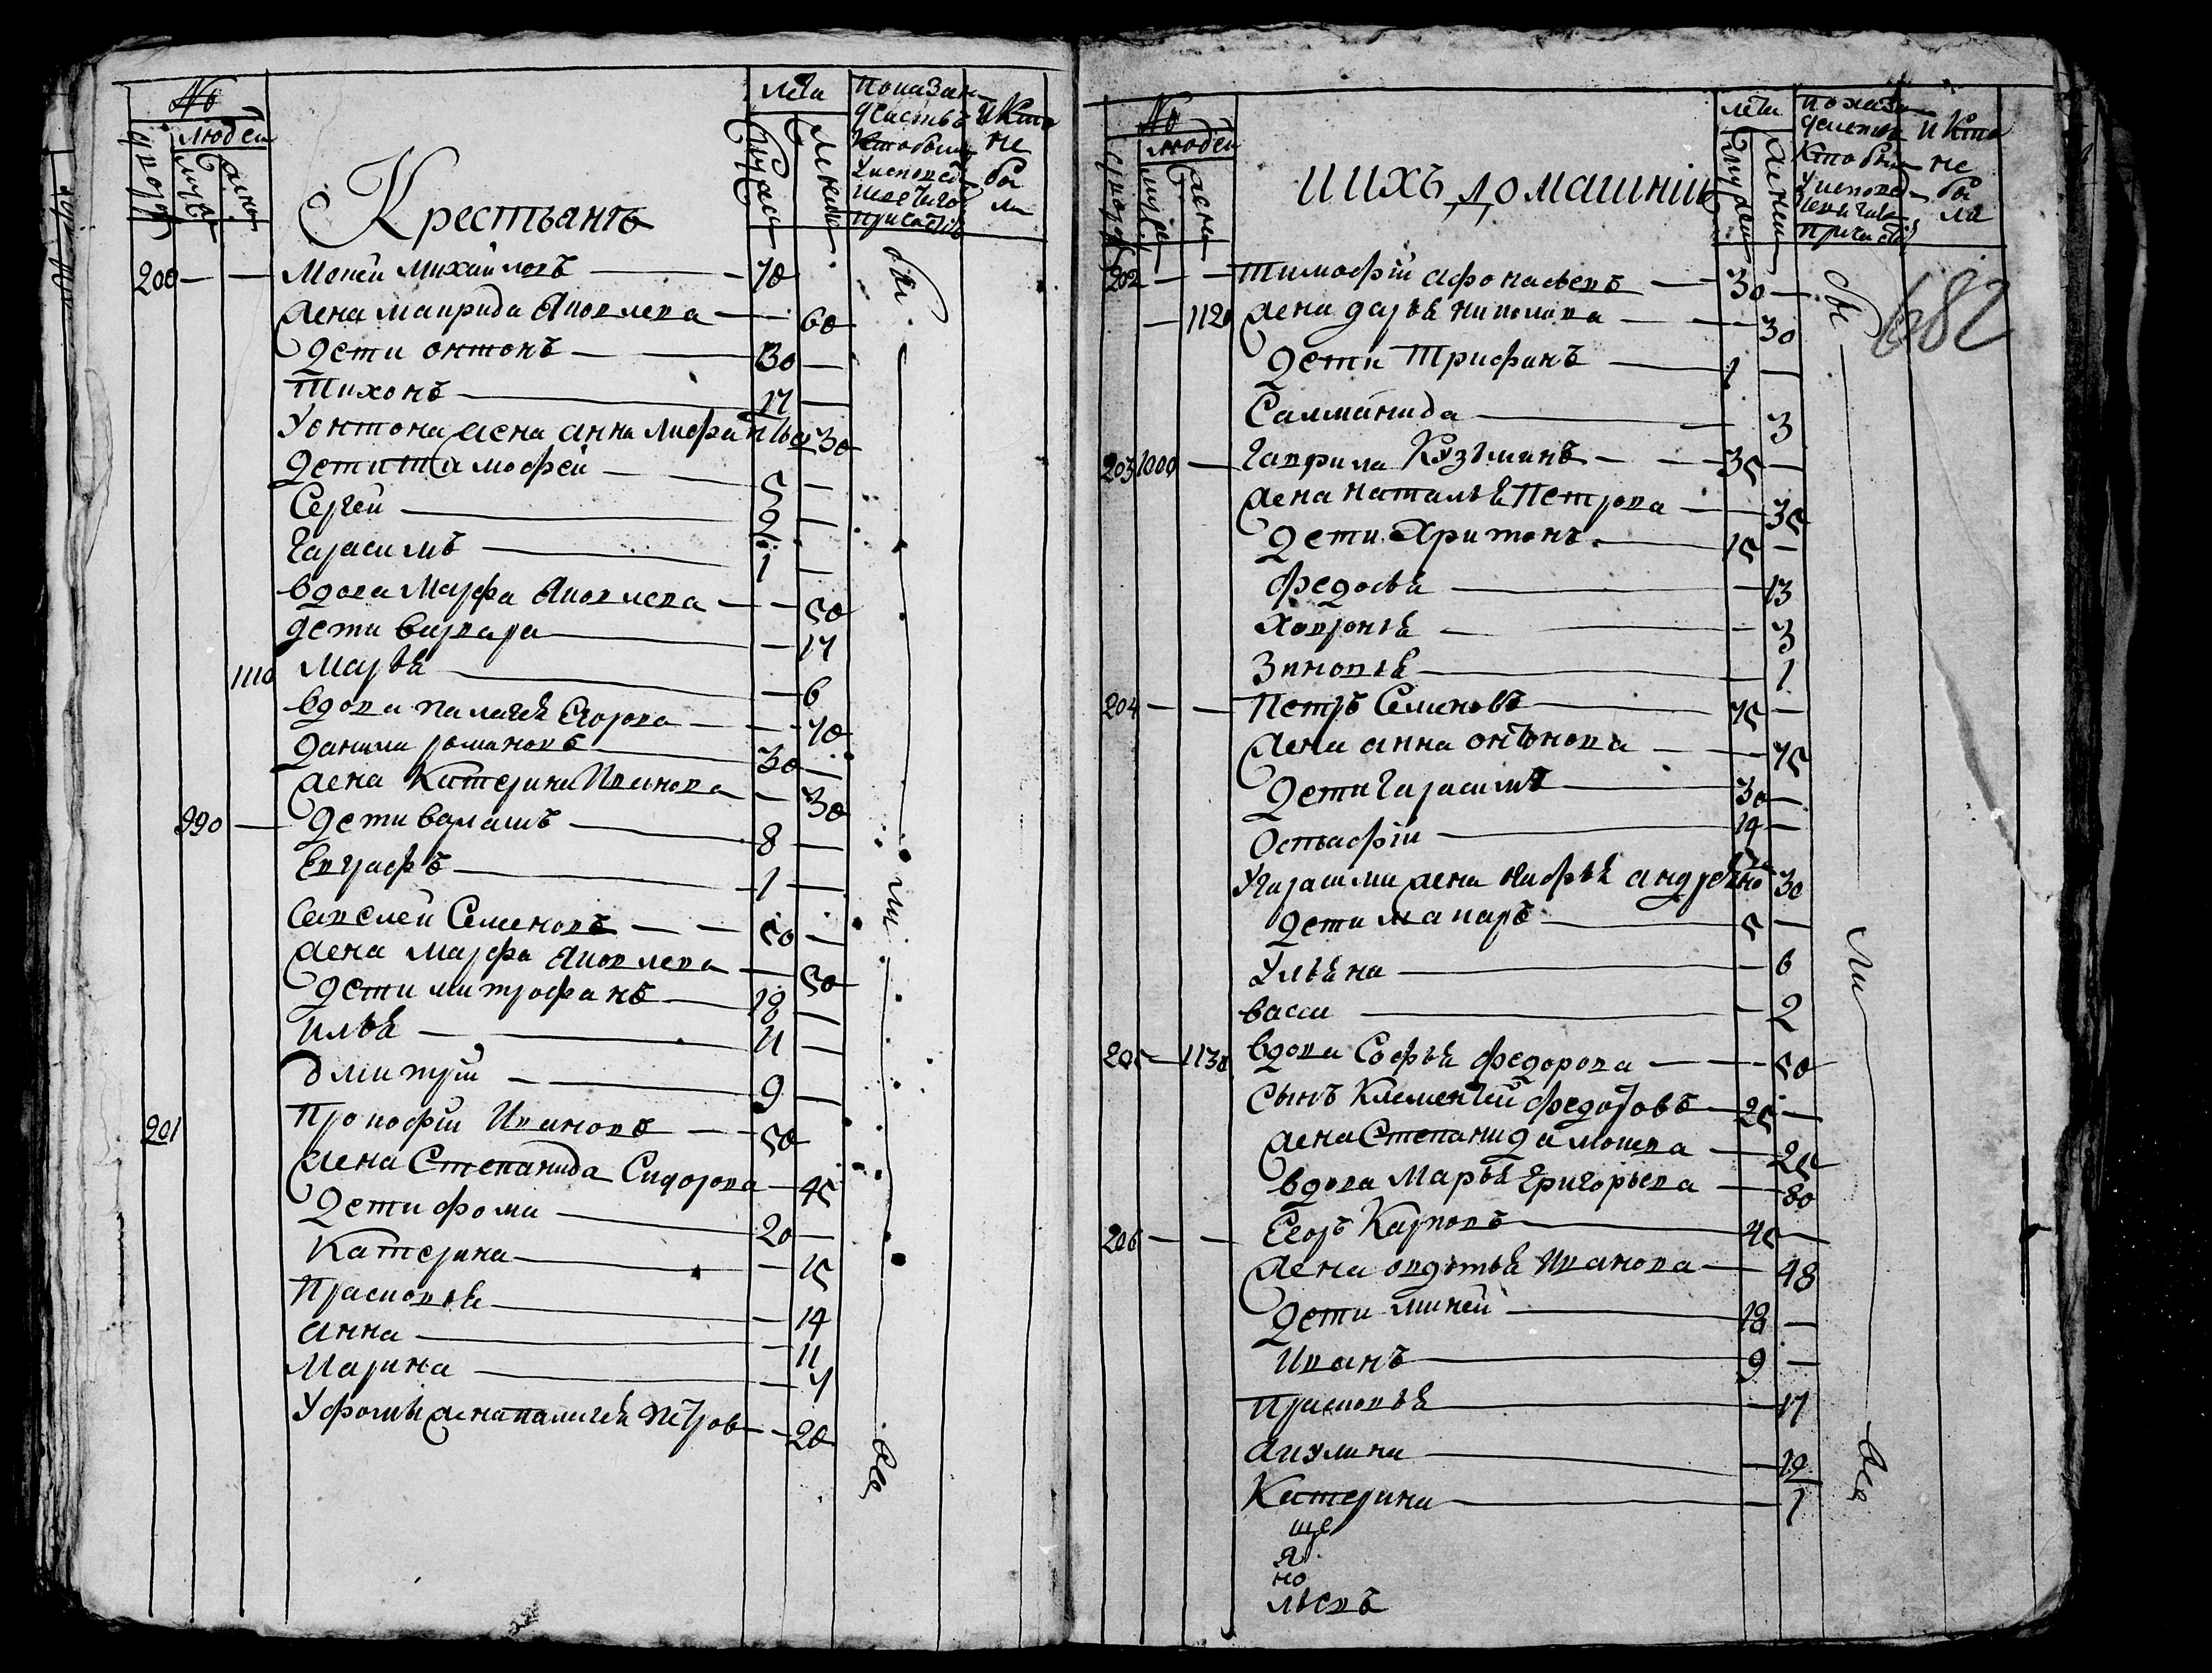 №
людеи
дворо
муже
жено
Крестьянъ
лета
мужеи
женеи
показан
действо
Кто были
У исповеди
и светаго
причастиѣ
и кто
не
бы
ли
200 — — Мокей Михаиловъ — 70
жена маврида Яковлева — 60
дети онтонъ — 30 —
Тихонъ — 17 —
У онтона жена анна Мифаньева 30
дети Тимофей — 5 —
Сергей — 2 —
Гарасимъ — 1 —
вдова Марфа Яковлева — — 50
дети варвара — 17
1110 Марья — 6
вдова палагея Егорова — — 70
данила романовъ — 30 —
жена Катерина Иванова — 30
990 — дети варламъ — 8 —
Евграфъ — 1 —
Савелей Семеновъ — — 50 —
жена марфа Яковлева — 50
дети митрофанъ — 18 —
илья — 11 —
дмитрий — 9 —
201 Прокофий Ивановъ — 50
жена Степанида Сидорова — 45
дети фома — 20 —
Катерина — 15
Прасковья — 14
анна — 11
Марина — 7
У фомы жена палагея Петров — 20
бы
ли
все
№
людей
дворо
муже
жено
и ихъ домашнии
лета
мужеи
женеи
показан
действо
Кто были
У исповед
и светаго
причасти
и кто
не
бы
ли
682
202 — — Тимофей афонасьевъ — 30 —
— 1120 жена дарья николова — — 30
дети Трифанъ — 1 —
Саламанида — 3
203 1000 — Гаврила Кузминъ — — 35 —
жена наталья Петрова — 35
дети Харитонъ — 15 —
федосья — 13
Хавронья — — 3
Зиновья — 1
204 — — Петръ Семеновъ — 75 —
жена анна онтонова — 75
дети Гарасимъ — 30 —
Остафий — 14 —
У гарасима жена марфья андреяно 30
дети макаръ — 5 —
Ульяна — 6
васса — 2
205 — 1130 вдова Софья федорова — 50
сынъ Клементий федоровъ — 25 —
жена Степанида мокиева — 25
вдова Марья Григорьева — 80
206 — — Егоръ Карповъ — 45 —
жена овдотья Иванова — 48
дети миней — 18 —
Иванъ — 9 —
Прасковья — 17
акулина — 12
Катерина — 1
ще
я
но
льевъ
бы
ли
все